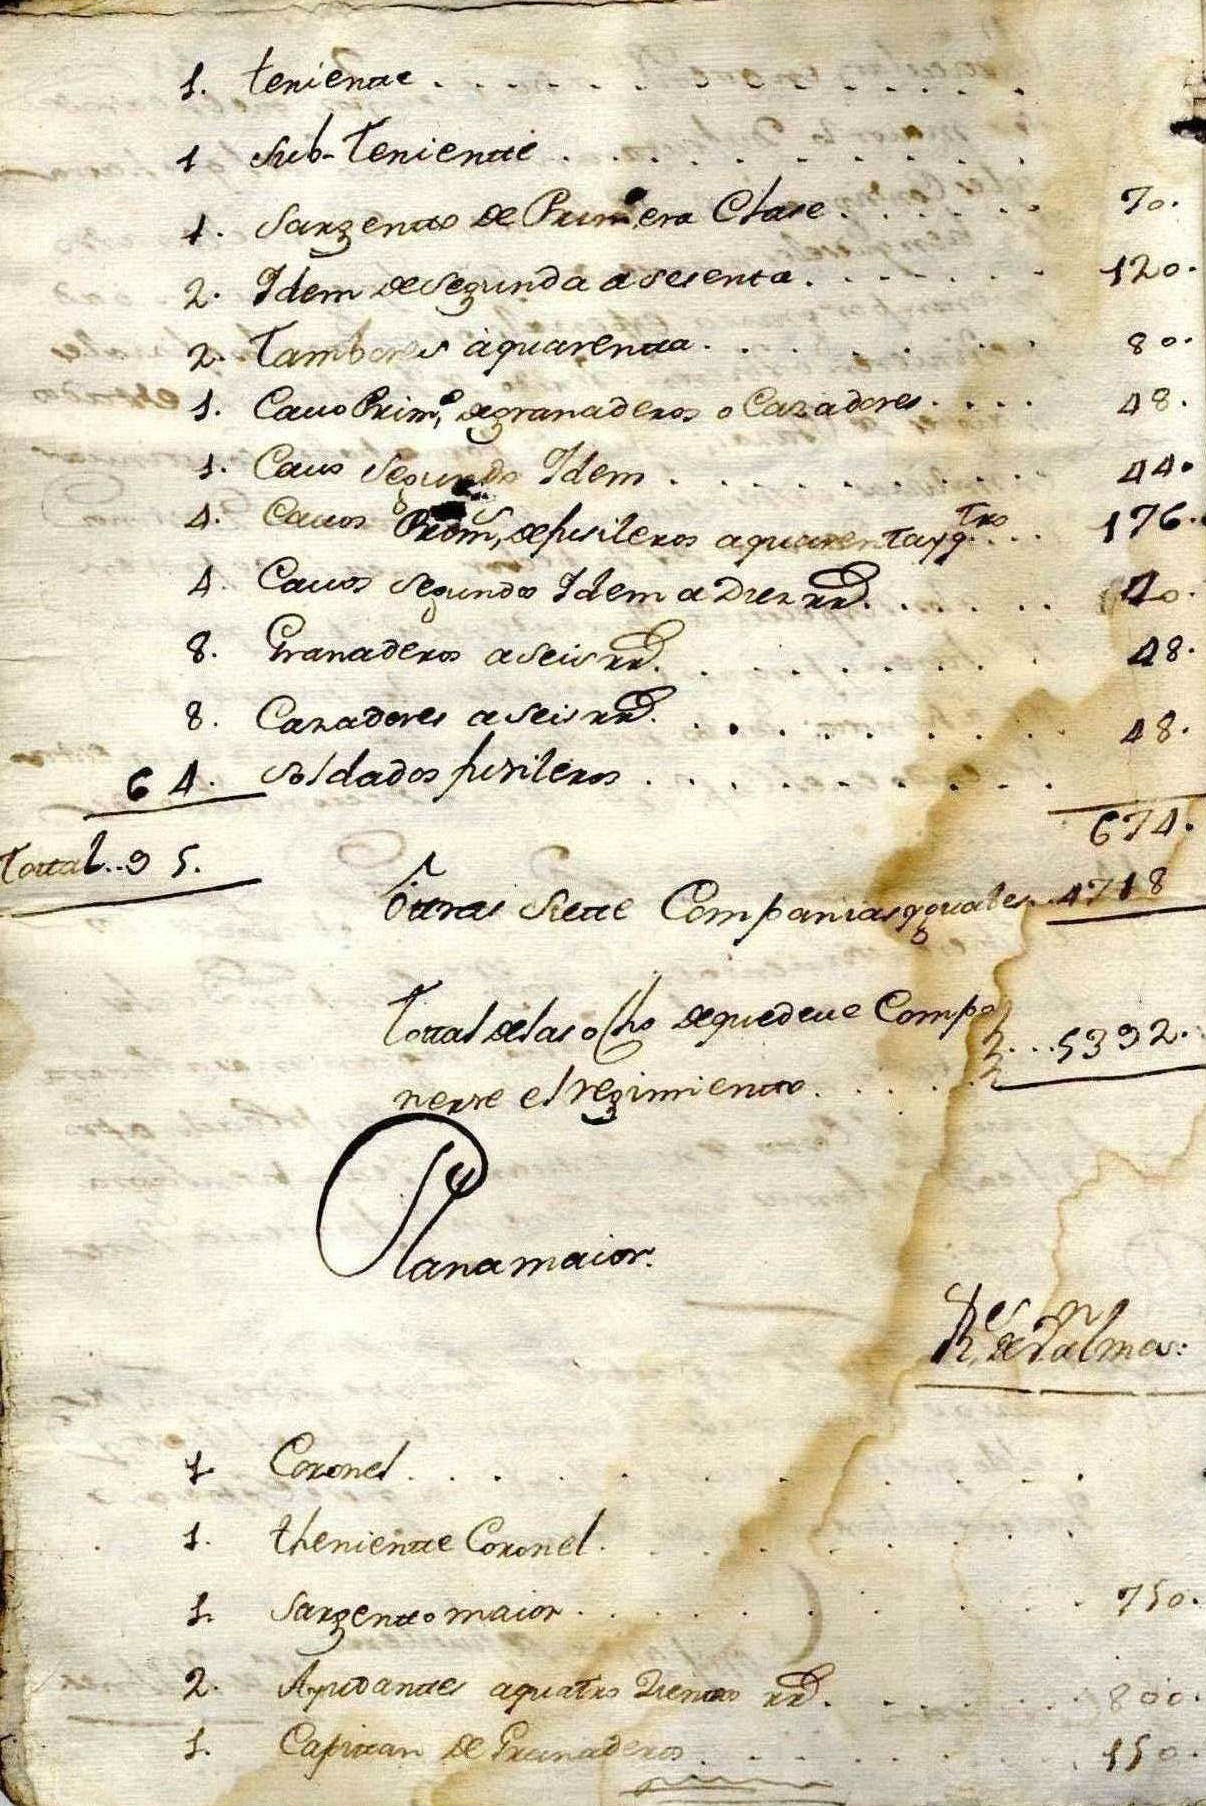 1. teniente
1 Sub-Teniente
1. Sargento de Primera Clase 70.
2. Idem de Segunda a sesenta 120.
2. Tambores à quarenta 80.
1. Cavo Prim,º de granaderos o Cazadores 48.
1. Cavo Segundo Idem 44.
4. Cavos Prom,s de fusileros a quarenta y q.tro 176.
4. Cavos Segundos Idem a Diez rrd. 40.
8. Granaderos a Seis rrd. 48.
8. Cazadores a Seis rrd. 48.
64. Soldados fusileros
674.
Total..95.
Otras Siete Companias yguales 4718
Total de las otho de que deve Compo
nerse el regimiento 5392.
Plana maior.
Res. de
1 Coronel
1. theniente Coronel
1. Sargento maior 750.
2. Ayudantes a quatro Zientos rrd. 800.
1. Capitan de Granaderos 150.